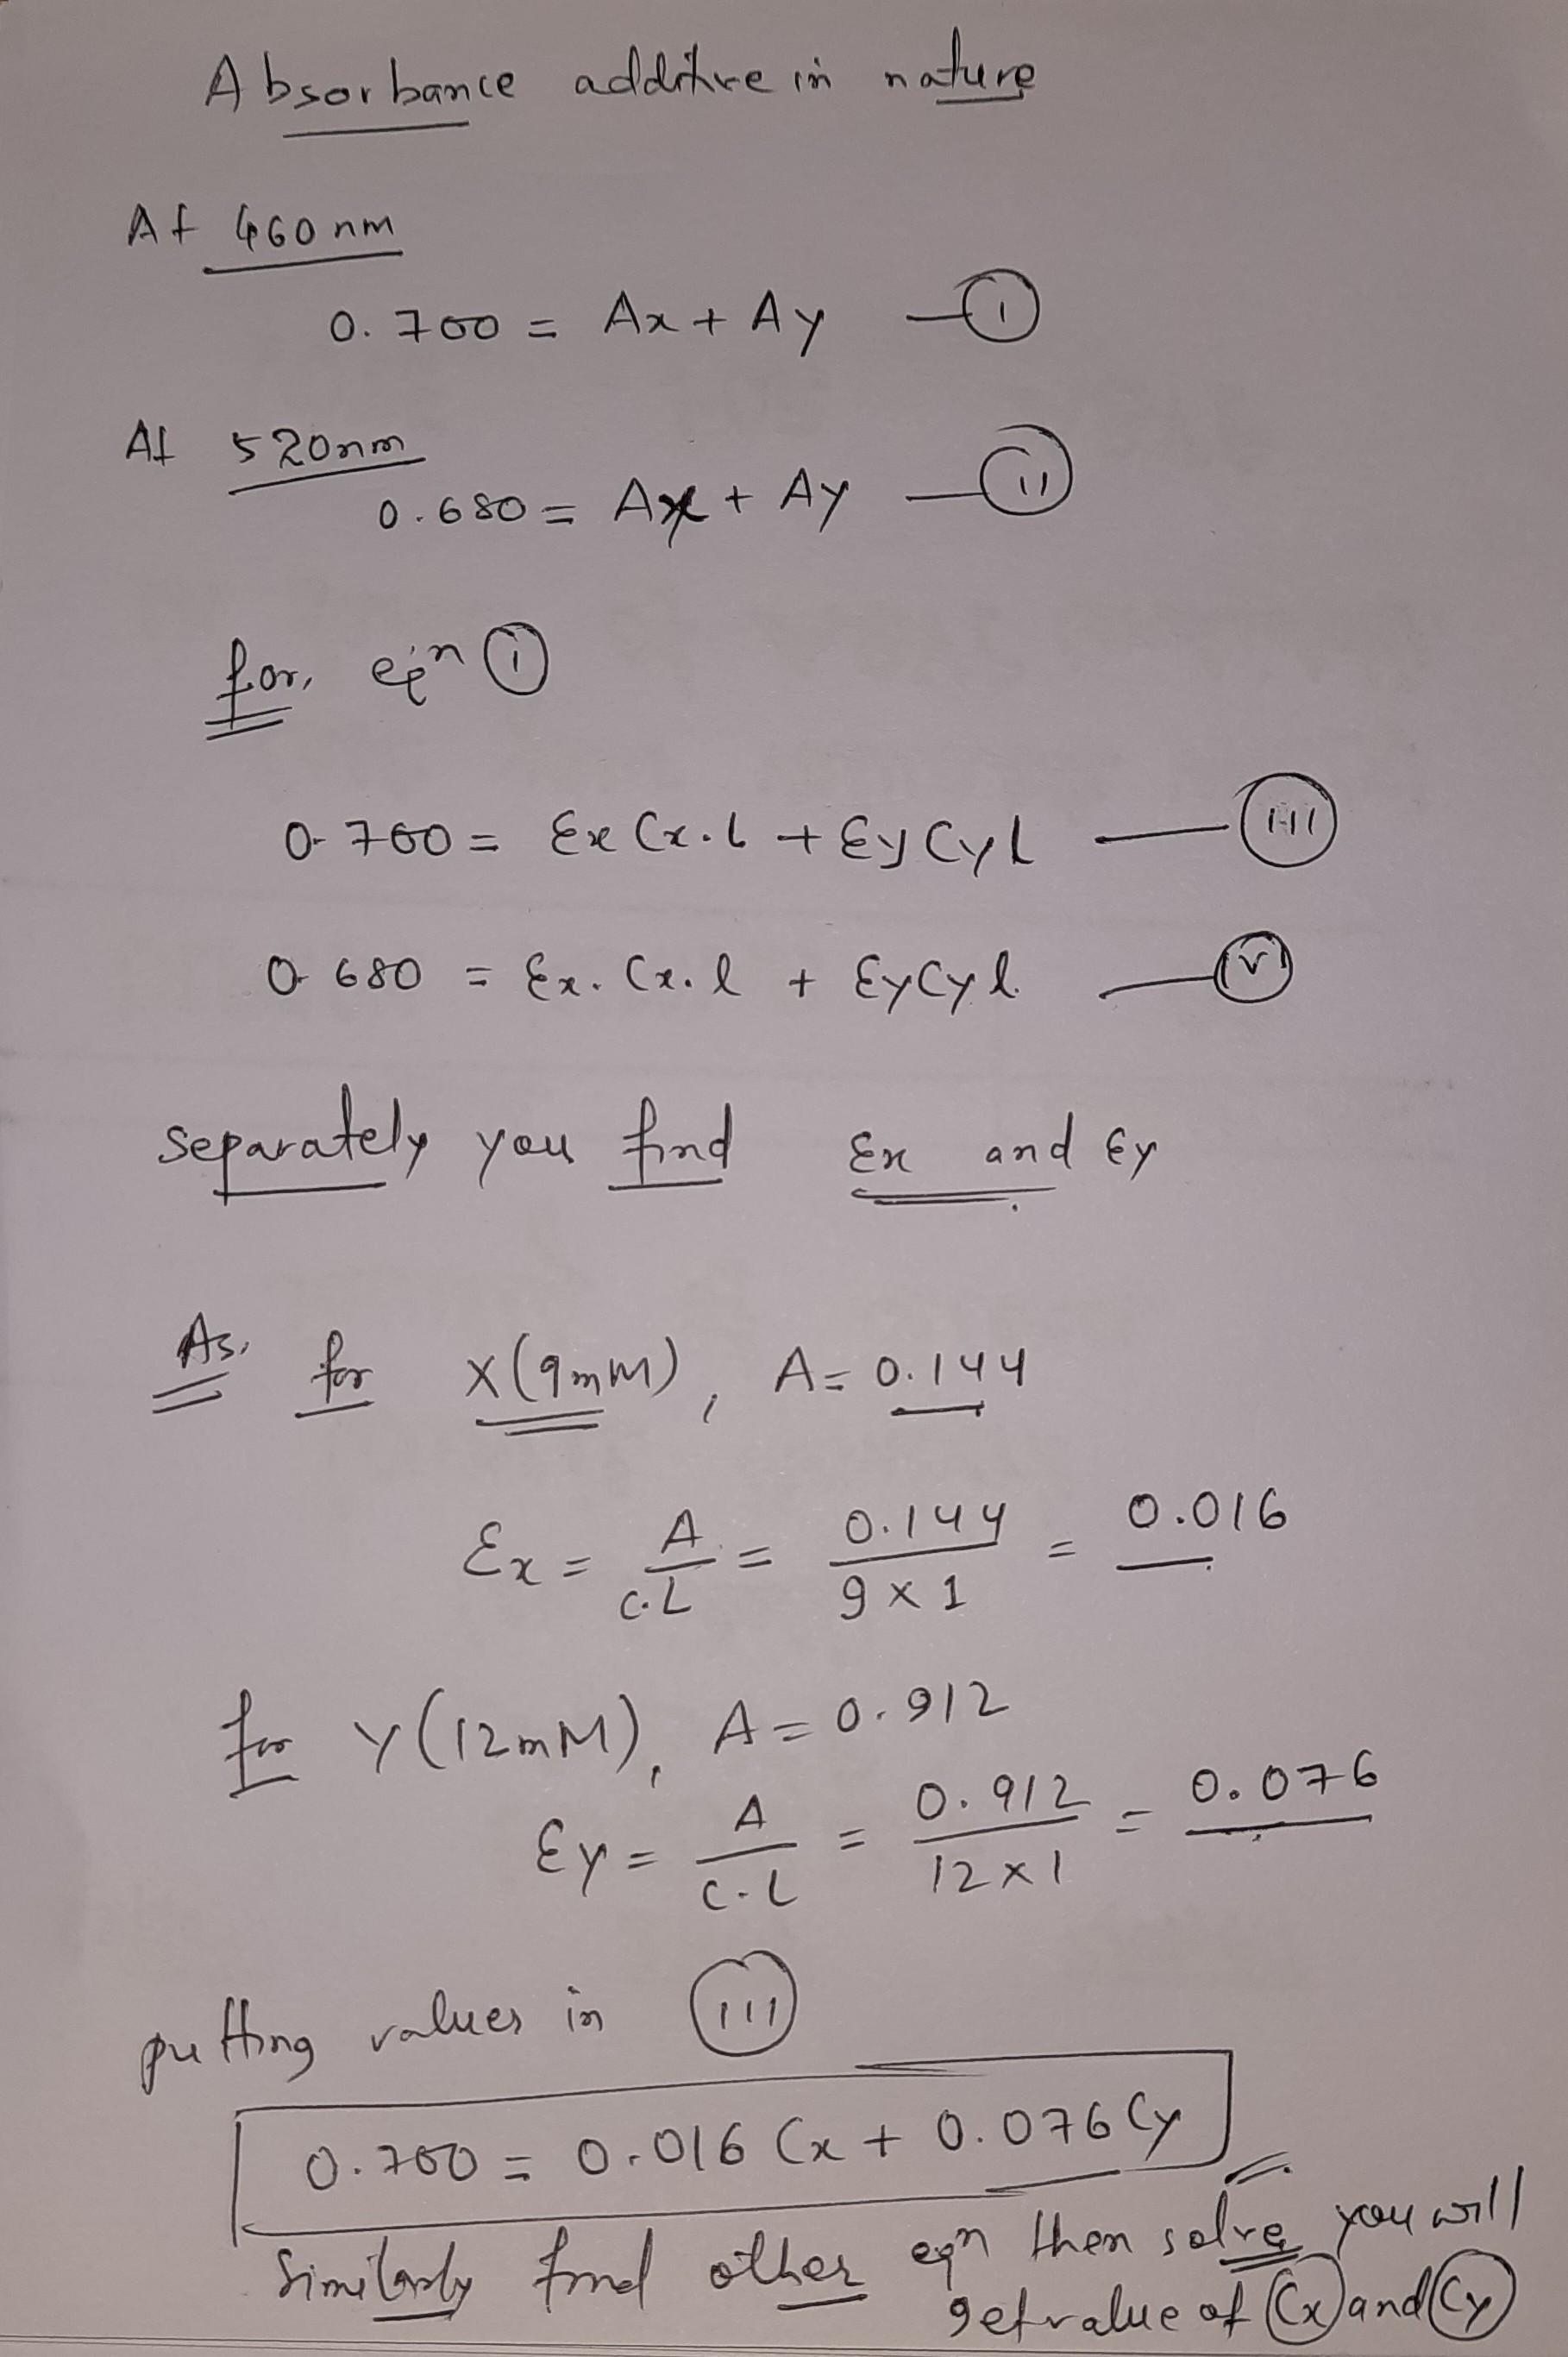 Absorbance additive in nature
At 460 nm
0.700 = Ax + Ay — (i)
At 520nm
0.680 = Ax + Ay — (ii)
for, eqn (i)
0.700 = Ɛx Cx.l + Ɛy Cy L — (iii)
0.680 = Ɛx. Cx. l + Ɛy Cy l. — (v)
separately you find Ɛx and Ɛy
As, for X(9mM), A = 0.144
Ɛx = A / C.L = 0.144 / 9 x 1 = 0.016
for Y(12mM), A = 0.912
Ɛy = A / C.L = 0.912 / 12 x 1 = 0.076
putting values in (iii)
0.700 = 0.016 Cx + 0.076 Cy
Similarly find other eqn then solve you will
get value of (Cx) and (Cy)